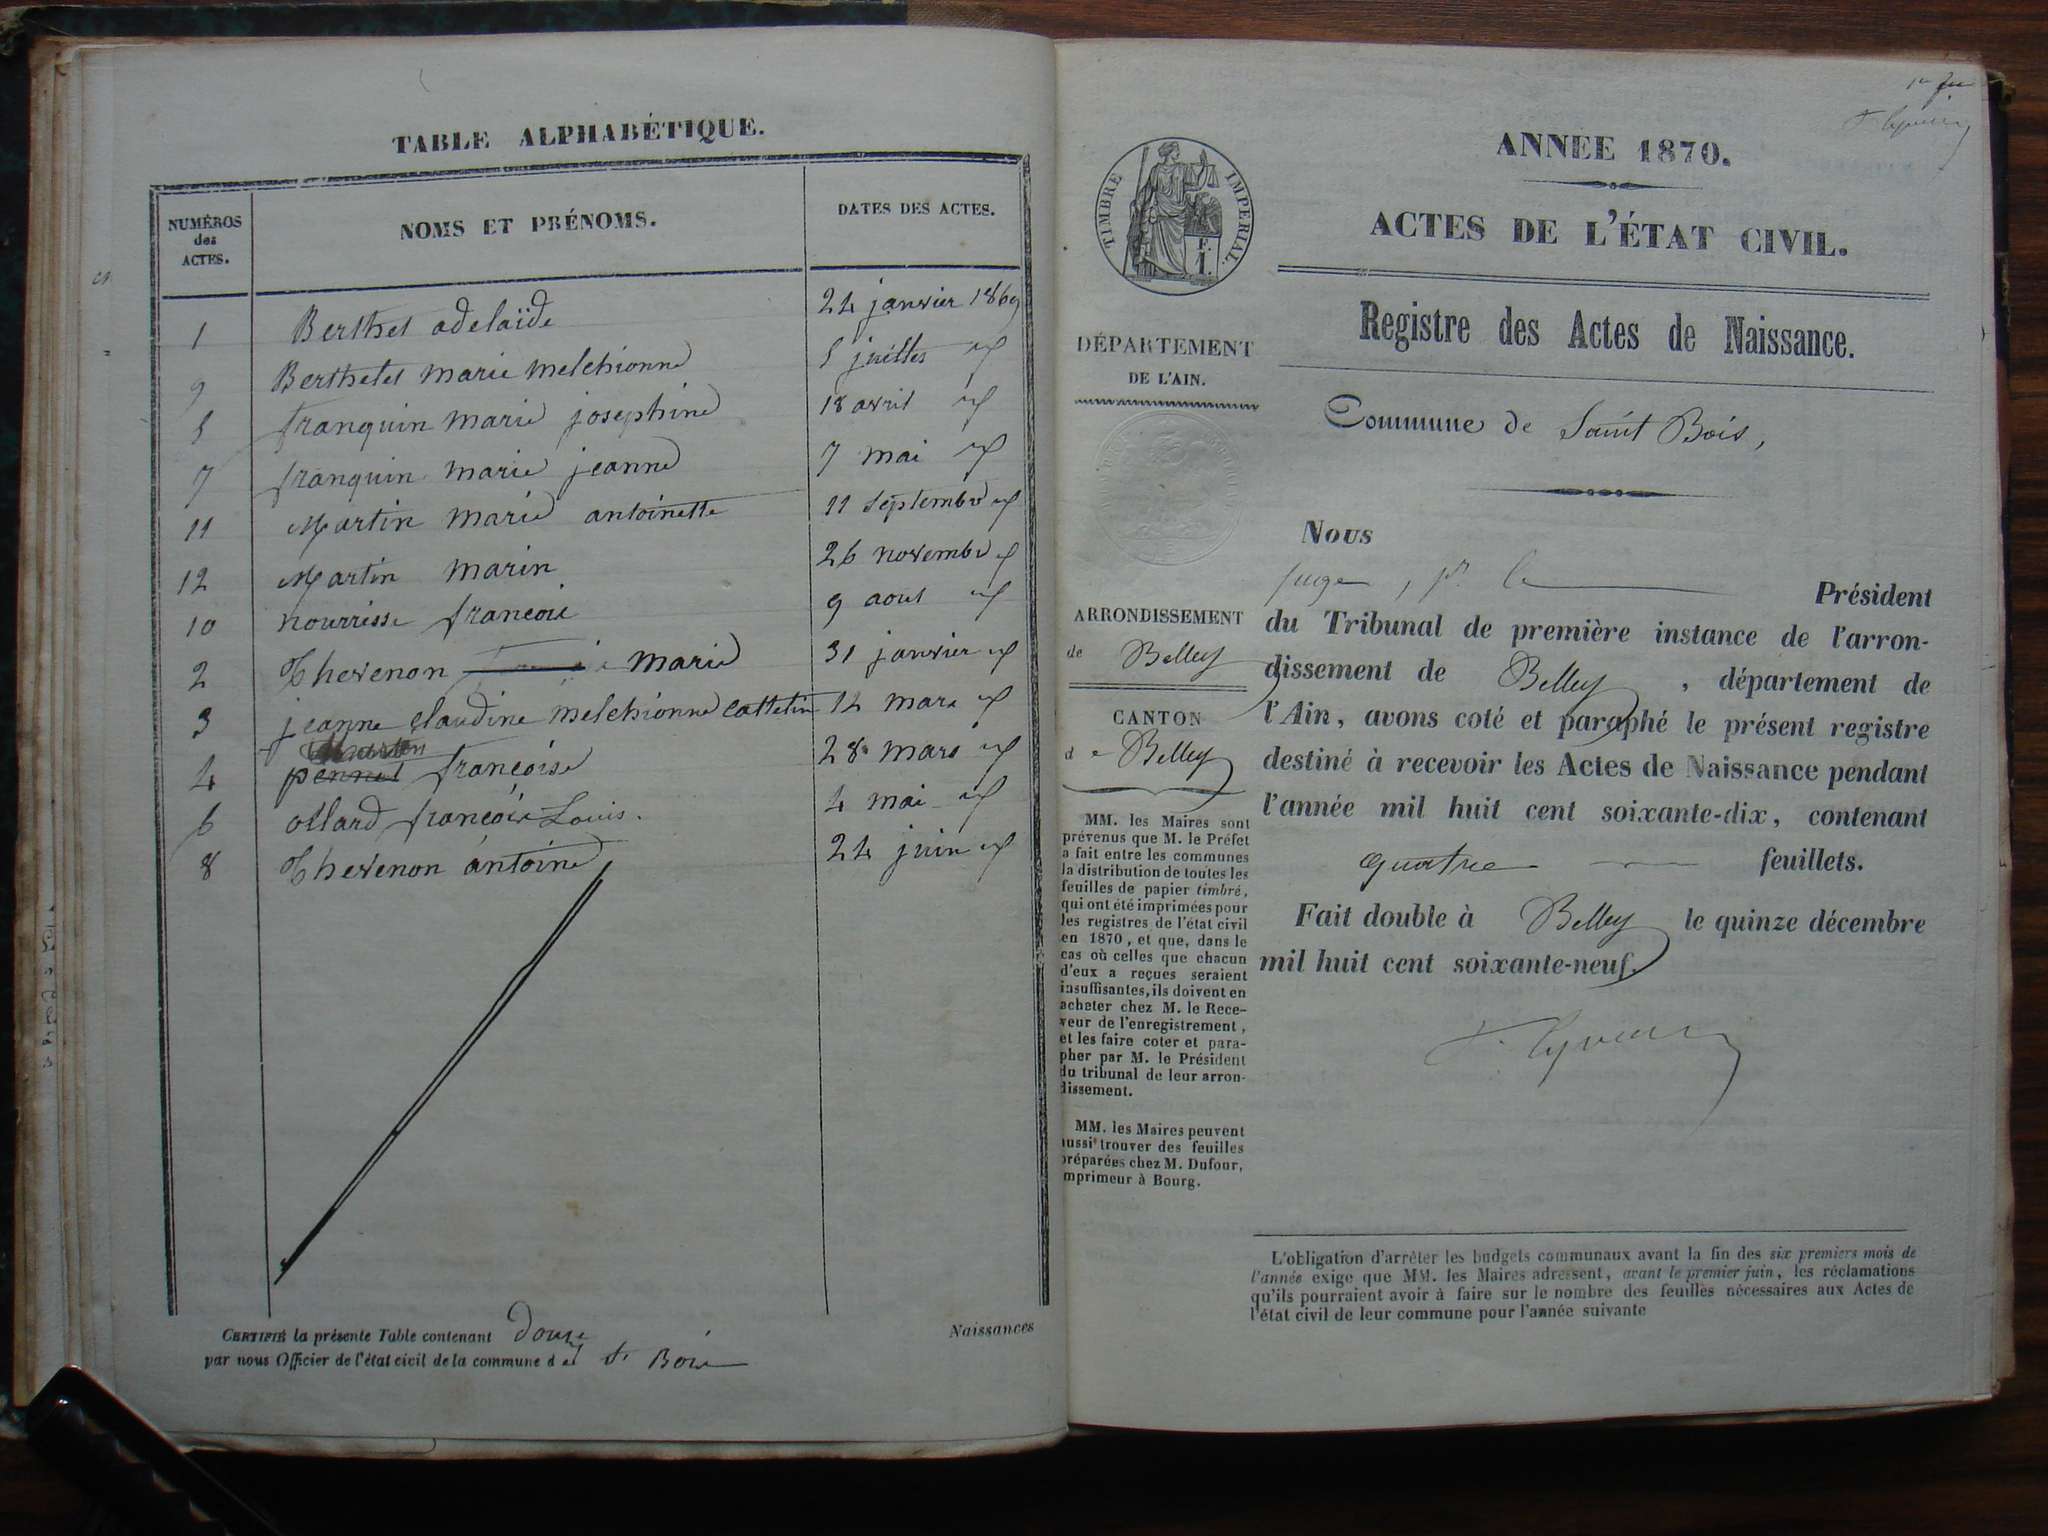 TABLE ALPHABÉTIQUE.
NUMÉROS des ACTES. NOMS ET PRÉNOMS. DATES DES ACTES.
1 Berthet adelaïde 24 janvier 1869
9 Berthelet marie melchionne 5 juillet
5 franquin marie josephine 18 avril
7 franquin marie jeanne 7 mai
11 Martin marie antoinette 11 septembre
12 Martin marin 26 novembre
10 nourrisse françois 9 aout
2 Thevenon marie 31 janvier
3 jeanne claudine melchionne Cattelin 12 mars
4 pernet françoise 28 mars
6 ollard françois Louis. 4 mai
8 Thevenon antoine 24 juin
CERTIFIÉ la présente Table contenant douze Naissances
par nous Officier de l'état civil de la commune de St Bois
TIMBRE IMPERIAL.
ANNÉE 1870.
ACTES DE L'ÉTAT CIVIL.
Registre des Actes de Naissance.
DÉPARTEMENT
DE L'AIN.
Commune de Saint Bois,
ARRONDISSEMENT
de Belley
CANTON
de Belley
MM. les Maires sont
prévenus que M. le Préfet
a fait entre les communes
la distribution de toutes les
feuilles de papier timbré,
qui ont été imprimées pour
les registres de l'état civil
en 1870, et que, dans le
cas où celles que chacun
d'eux a reçues seraient
insuffisantes, ils doivent en
acheter chez M. le Rece-
veur de l'enregistrement,
et les faire coter et para-
pher par M. le Président
du tribunal de leur arron-
dissement.
MM. les Maires peuvent
aussi trouver des feuilles
préparées chez M. Dufour,
imprimeur à Bourg.
Nous
juge, pr le Président
du Tribunal de première instance de l'arron-
dissement de Belley, département de
l'Ain, avons coté et paraphé le présent registre
destiné à recevoir les Actes de Naissance pendant
l'année mil huit cent soixante-dix, contenant
quatre feuillets.
Fait double à Belley le quinze décembre
mil huit cent soixante-neuf.
L'obligation d'arrêter les budgets communaux avant la fin des six premiers mois de
l'année exige que MM. les Maires adressent, avant le premier juin, les réclamations
qu'ils pourraient avoir à faire sur le nombre des feuilles nécessaires aux Actes de
l'état civil de leur commune pour l'année suivante